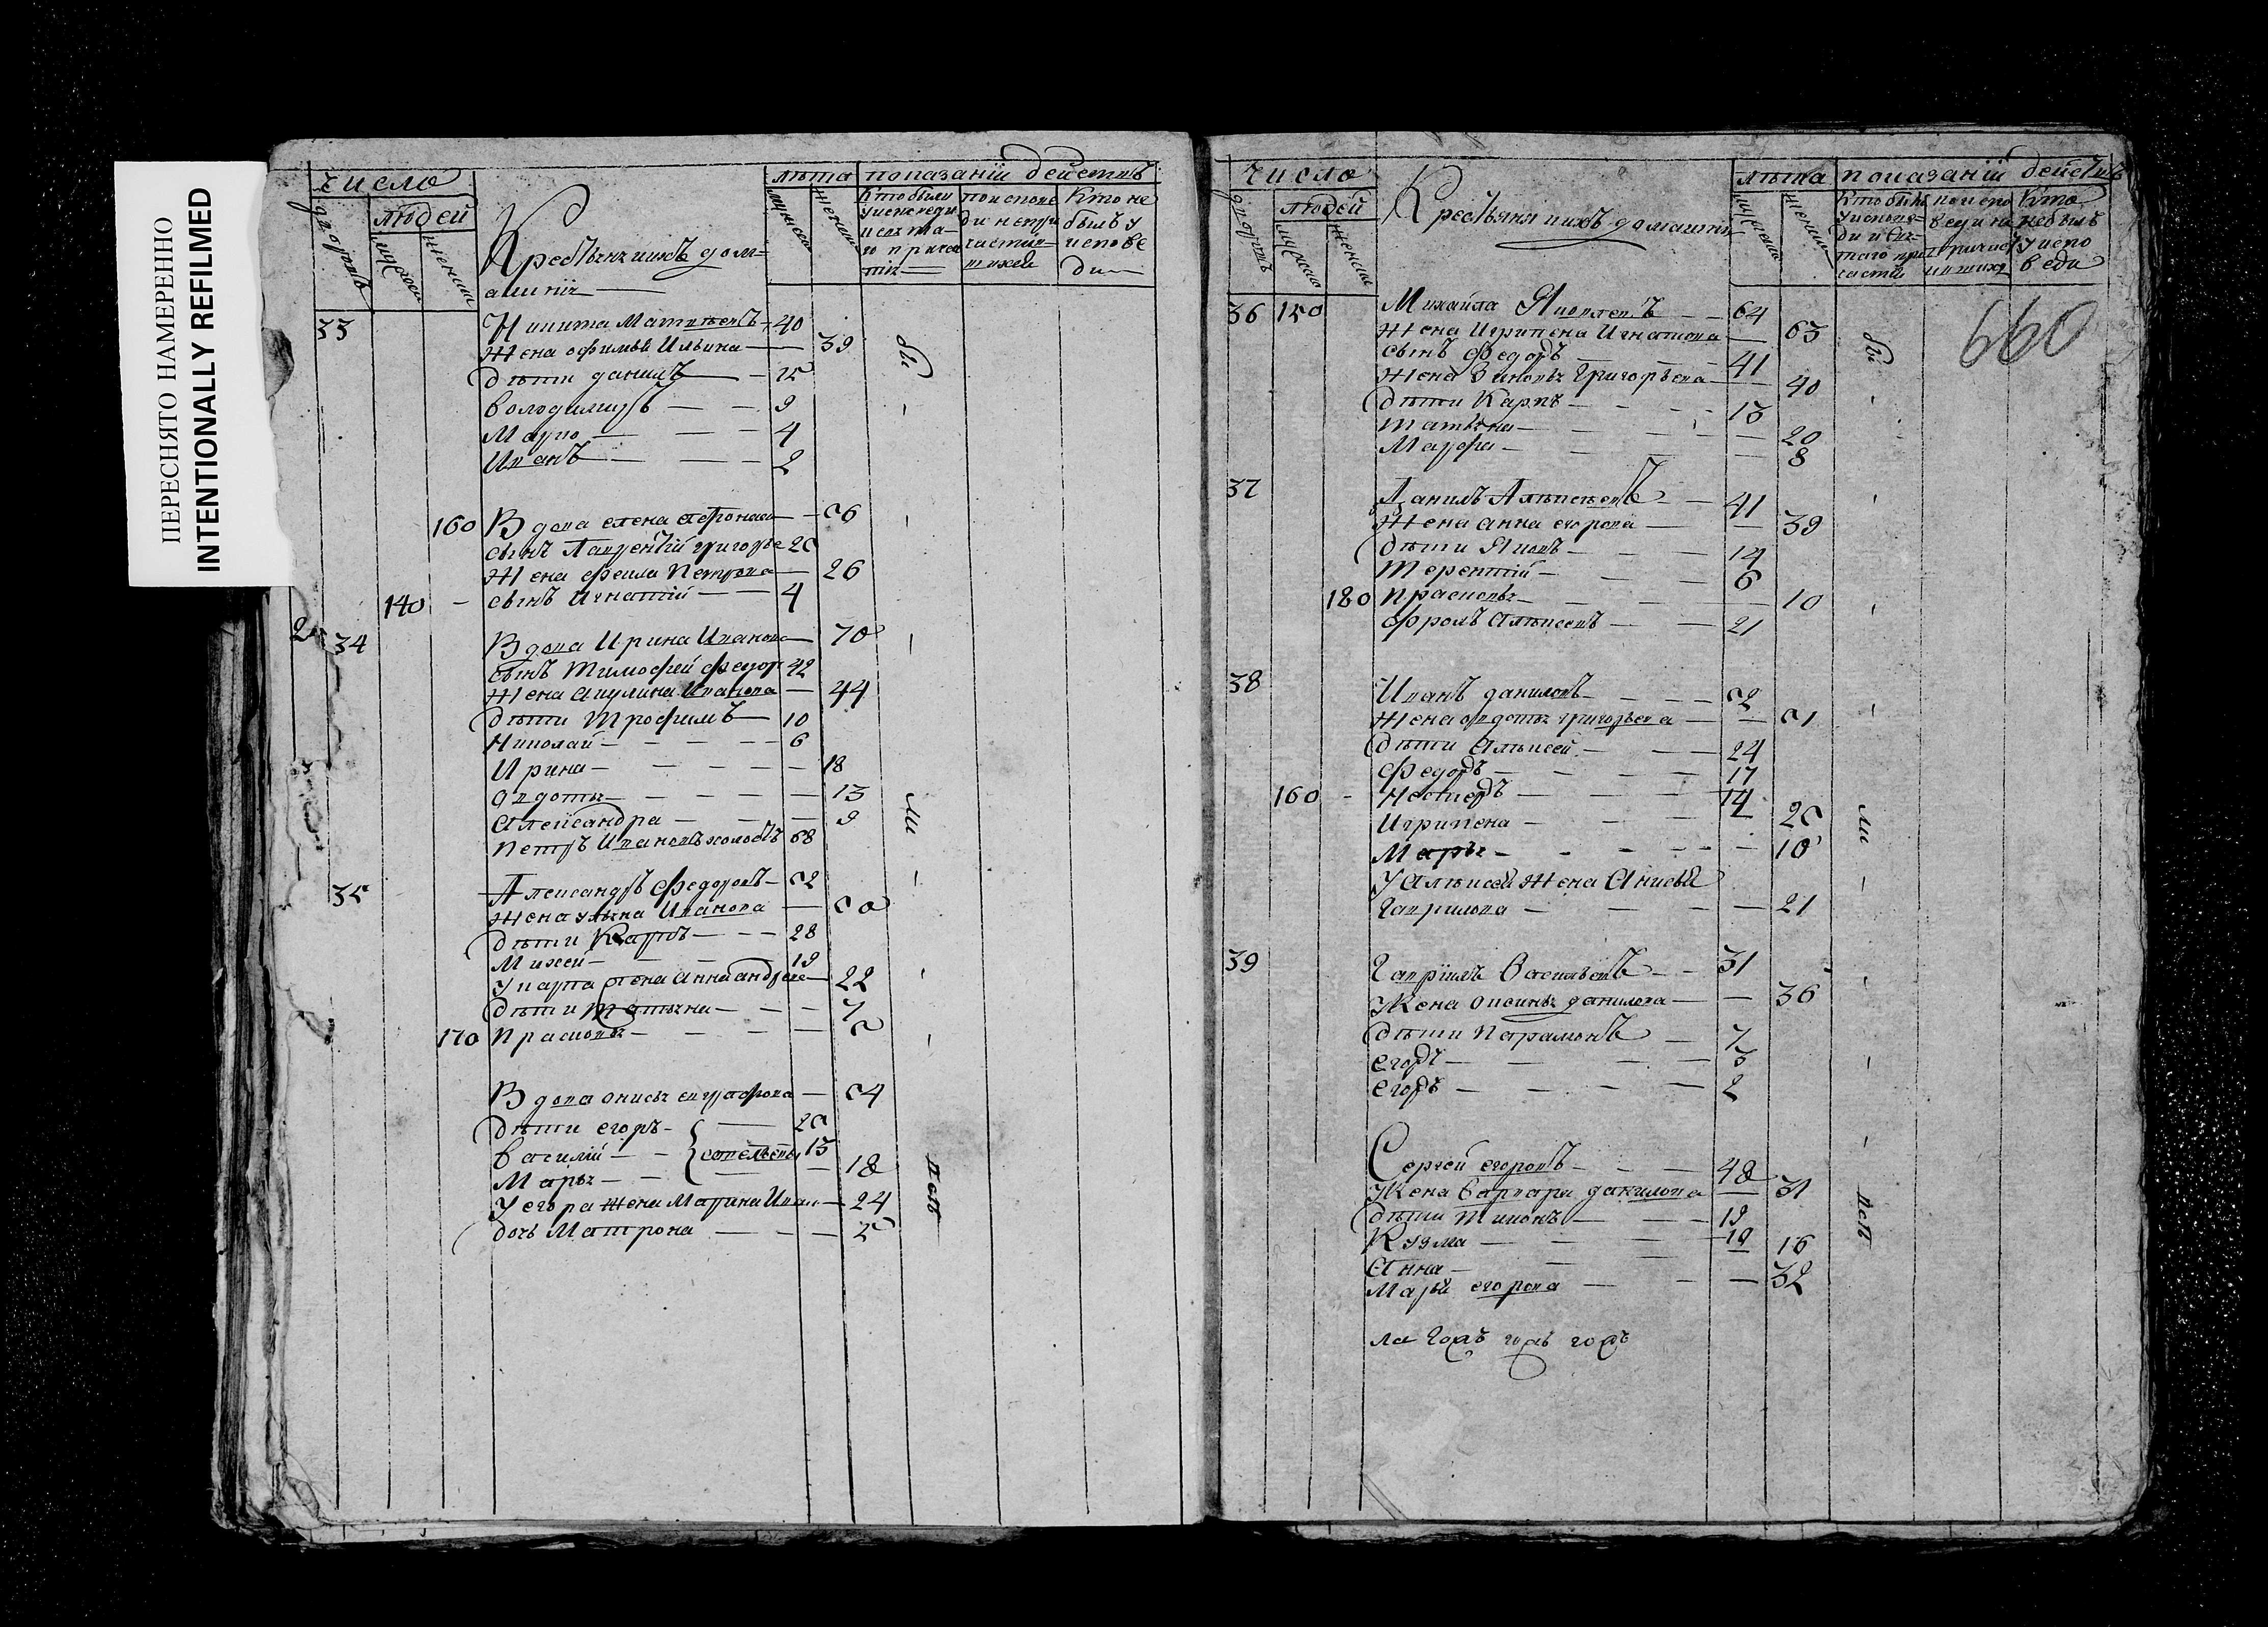 ПЕРЕСНЯТО НАМЕРЕННО
INTENTIONALLY REFILMED
число
людей
дворовъ
мужеска
женска
Крестьяня ихъ дом=
ашнія
лѣта
мужеска
женска
показаніи действъ
Кто были
у исповеди
и свята-
го прича
тія
по испове
ди не при
частил=
ихся
Кто не
былъ у
испове
ди
33
Никита Матвѣевъ 40
жена офимья Ильина 39
дѣти данилъ 15
володимиръ 9
Марко 4
Иванъ 2
160 Вдова елена афонасье 56
сынъ Лаврентій григорье 25
Жена фекла Петрова 26
140 сынъ Игнатій 4
34 Вдова Ирина Иванова 70
сынъ Тимофей федор 42
жена акулина Иванова 44
дѣти Трофимъ 10
Николай 6
Ирина 18
авдотья 13
александра 9
Петръ Ивановъ холостъ 68
35 Александръ федоровъ 52
жена ульяна Иванова 50
дѣти Карпъ 28
Михей 19
У карпа жена Анна андрее 22
дѣти Татьяна 7
170 Прасковья 5
Вдова анисья евграфова 54
дѣти егоръ 25
василій 13
Марья 18
У егора жена Марина Иван 24
дочь Матрона 2
бы
ли
всѣ
число
людей
дворовъ
мужеска
женска
Крестьяня ихъ домашнія
лѣта
мужеска
женска
показаніи действъ
Кто былъ
у испове-
ди и свя-
таго при
частія
по испо
веди не
причаст
ившихся
Кто
не былъ
у испо
веди
660
36 150 Михайла Яковлевъ 64
жена Игрипена Игнатова 63
сынъ федоръ 41
жена Зиновья Григорьева 40
дѣти Карпъ 13
татьяна 20
Марфа 8
37 Данилъ Алѣксѣевъ 41
жена анна егорова 39
дѣти Яковъ 14
Терентій 6
180 Прасковья 10
фролъ алѣксеевъ 21
38 Иванъ даниловъ 52
жена авдотья григорьева 51
дѣти Алѣксей 24
федоръ 17
160 Несторъ 14
Игрипена 25
Марья 10
У Алѣксея жена Анисья
Гаврилова 21
39 Гаврілъ Васильевъ 31
Жена аксинья данилова 36
дѣти Парамонъ 7
егоръ 3
егоръ 2
Сергей егоровъ 48
Жена варвара данилова 31
дѣти тихонъ 19
Кузма 10
анна 16
Марья егорова 32
бы
ли
всѣ